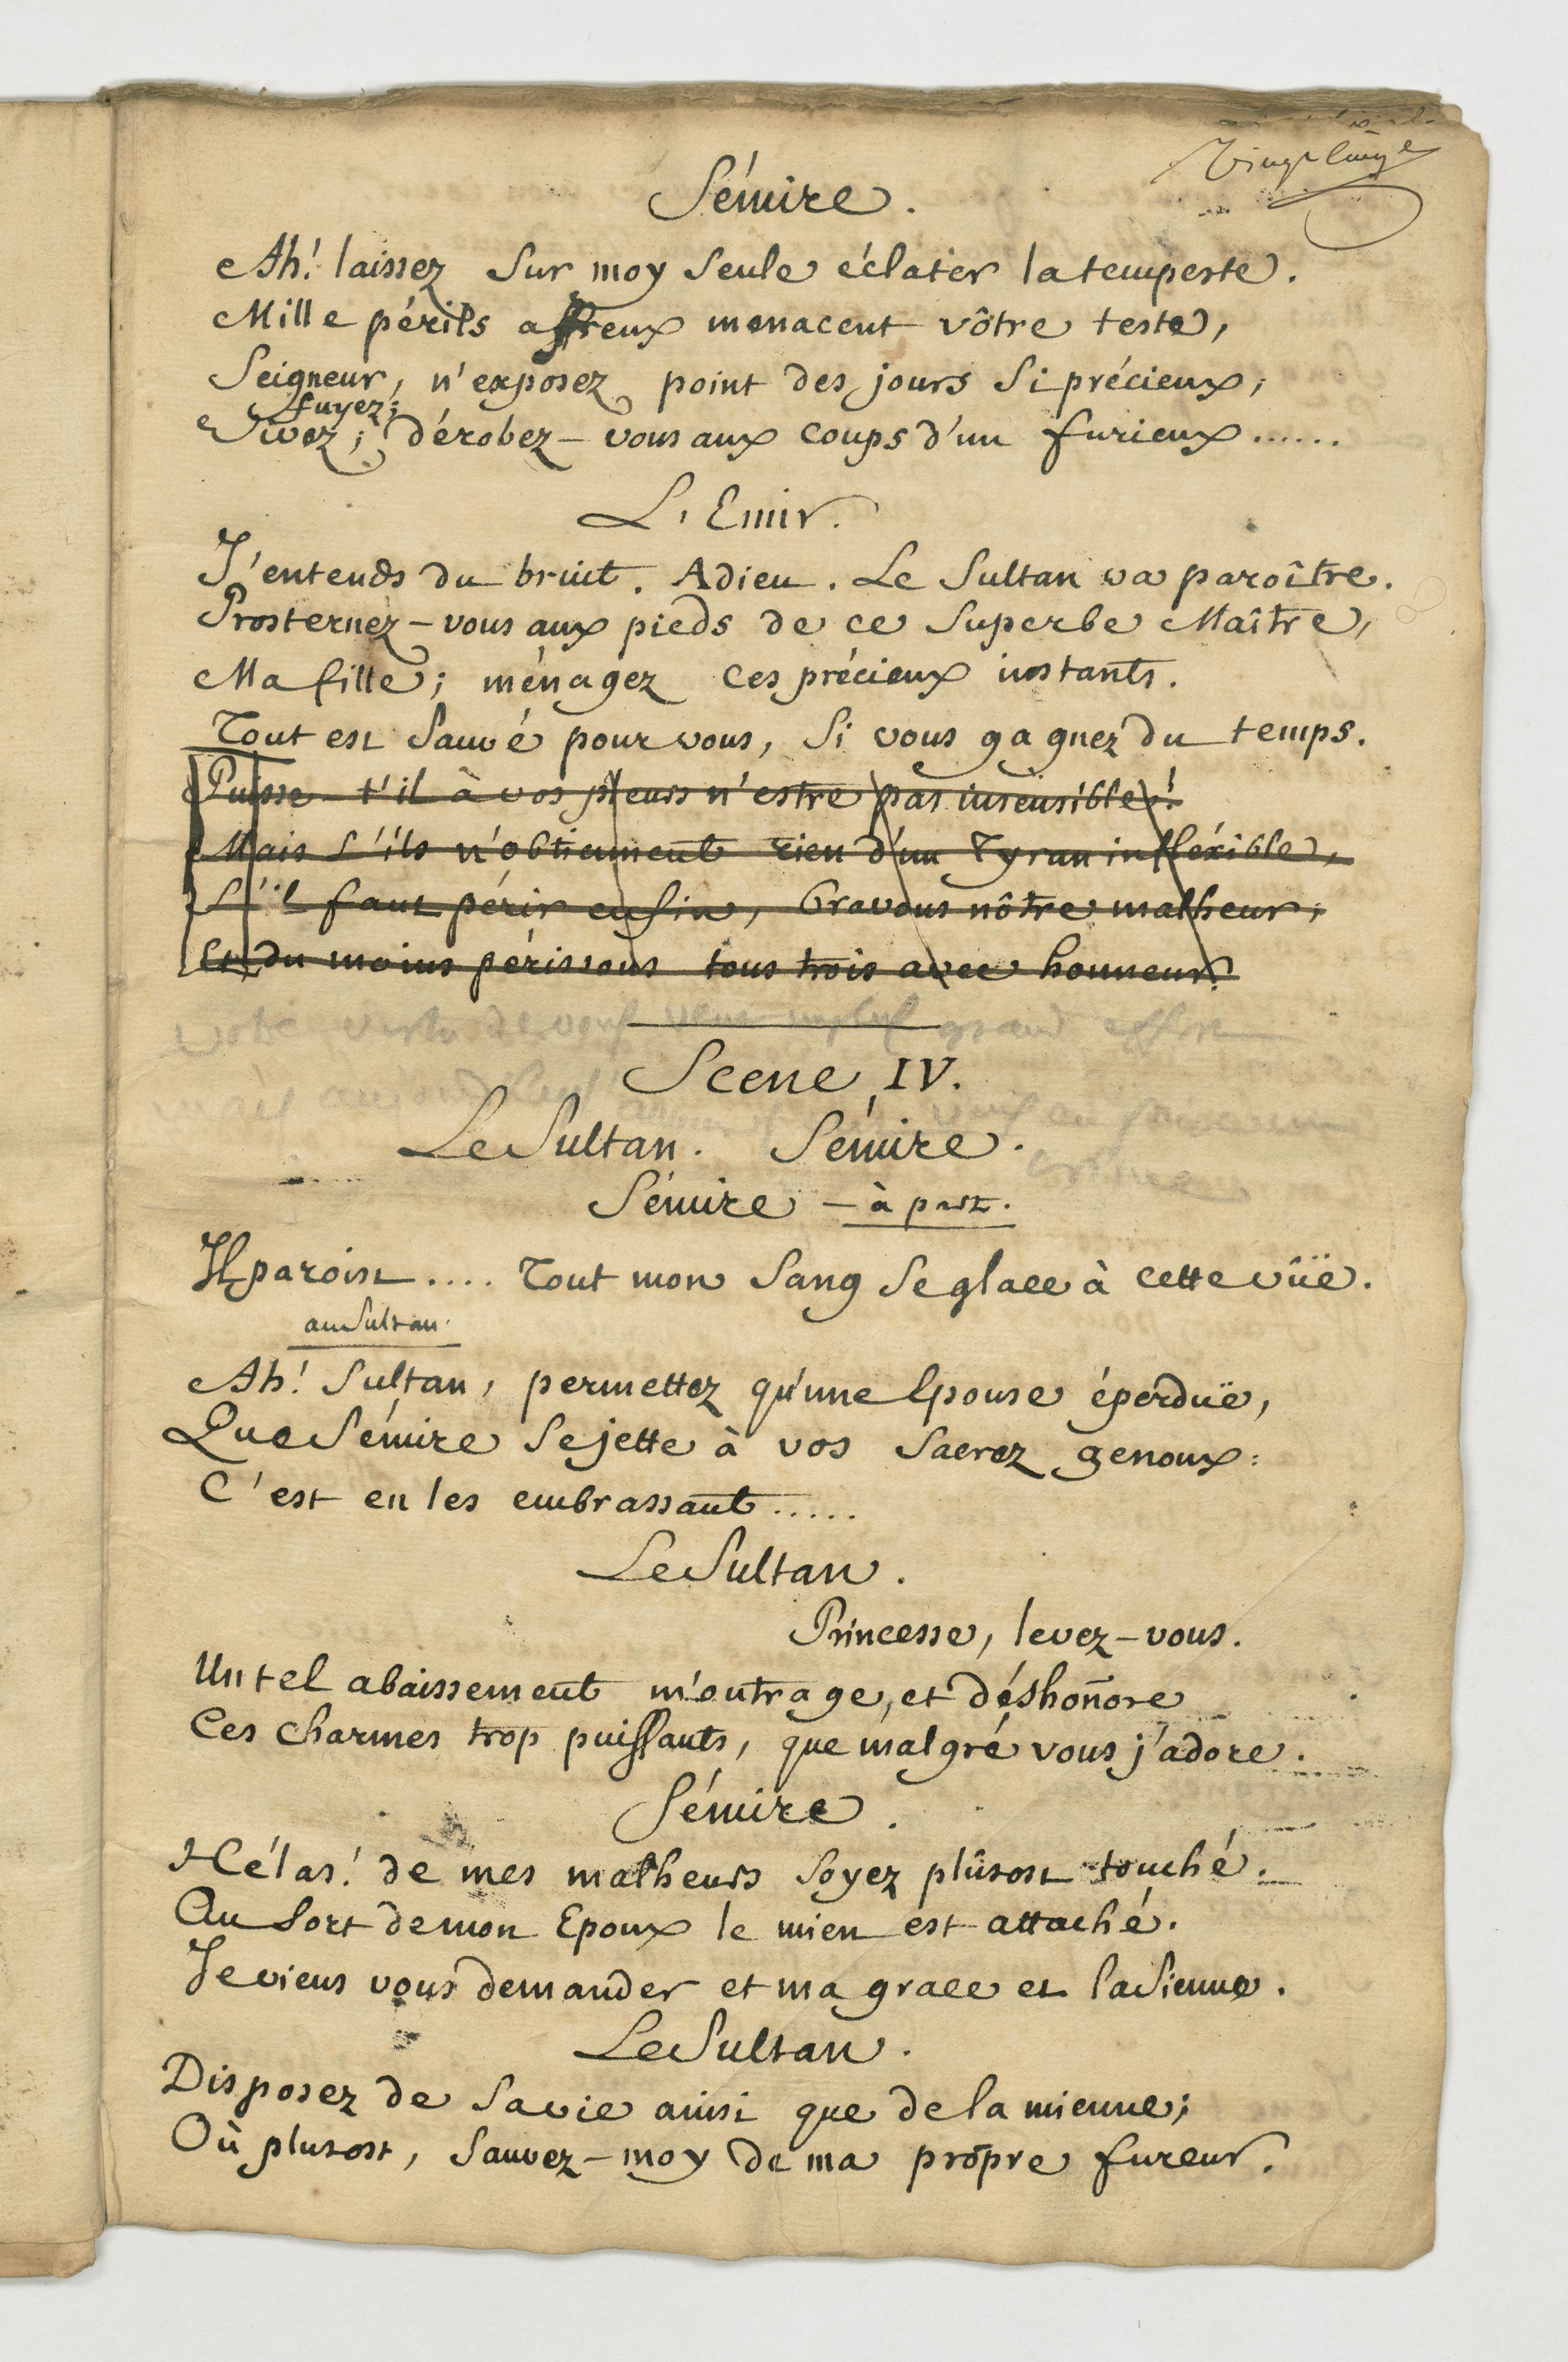 Sémire.
Ah! laissez sur moy seule éclater la tempeste.
Mille périls affreux menacent vôtre teste,
Seigneur, n'exposez point des jours si précieux;
fuyez;
Vivez; dérobez-vous aux coups d'un furieux......
L'Emir.
J'entends du bruit. Adieu. Le Sultan va paroître.
Prosternez-vous aux pieds de ce superbe Maître,
Ma fille; ménagez ces précieux instants.
Tout est sauvé pour vous, si vous gagnez du temps.
Puisse t'il à vos pleurs n'estre pas insensible!
Mais s'ils n'obtiennent rien d'un Tyran infléxible,
S'il faut périr enfin, bravons nôtre malheur;
Et du moins périssons tous trois avec honneur.
votre vertu grand effort
Scene IV.
Le Sultan. Sémire.
Sémire - à part.
Il paroist.... Tout mon sang se glace à cette vûë.
au Sultan.
Ah! Sultan, permettez qu'une Epouse éperduë,
Que Sémire se jette à vos sacrez genoux:
C'est en les embrassant.....
Le Sultan.
Princesse, levez-vous.
Un tel abaissement m'outrage, et déshoñore
Ces charmes trop puissants, que malgré vous j'adore.
Sémire.
Hélas! de mes malheurs soyez plûtost touché.
Au sort de mon Epoux le mien est attaché.
Je viens vous demander et ma grace et la sienne.
Le Sultan.
Disposez de sa vie ainsi que de la mienne;
Où plutost, sauvez-moy de ma propre fureur.